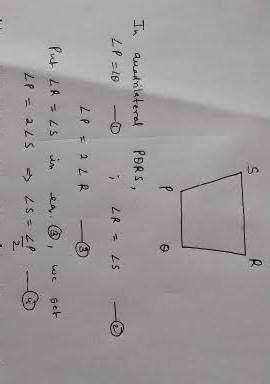 S
R
P
Q
In quadrilateral PQRS,
∠P = ∠Q —①  ; ∠R = ∠S —②
∠P = 2∠R —③
Put ∠R = ∠S in eq. ③, we get
∠P = 2∠S ⇒ ∠S = ∠P/2 —④